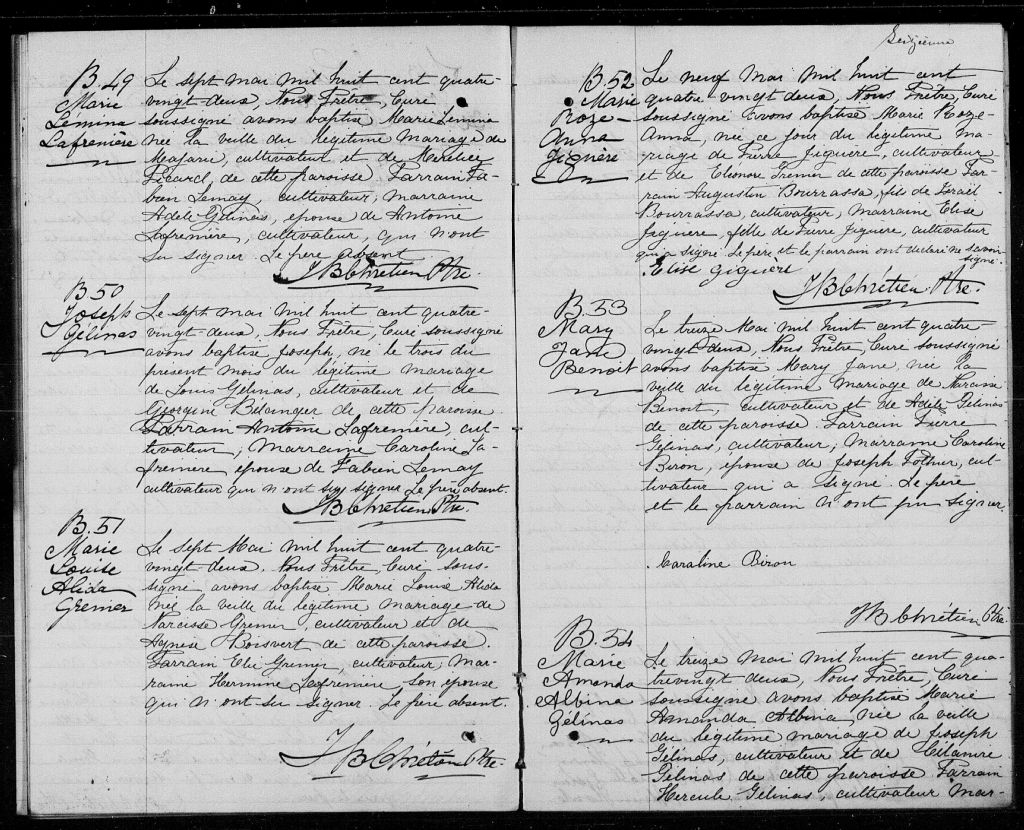 B.49
Marie
Lémina
Lafrenière
Le sept Mai Mil huit cent quatre-
vingt deux, Nous Prêtre, Curé
soussigné avons baptisé Marie Lemina
née la veille du légitime Mariage de
cultivateur et de
Picard, de cette paroisse Parrain Fa-
bien Lemay, cultivateur, marraine
Adèle Gélinas, épouse de Antoine
Lafrenière, cultivateur, qui n'ont
su signer. Le père absent
JB Chrétien Ptre.
B 50
Joseph
Gélinas
Le sept mai mil huit cent quatre-
vingt-deux, Nous Prêtre, Curé soussigné
avons baptisé Joseph, né le trois du
présent mois du légitime mariage
de Louis Gélinas, cultivateur et de
Georgine Bélanger de cette paroisse.
Parrain Antoine Lafrenière, cul-
tivateur, Marraine Caroline La-
frenière épouse de Fabien Lemay
cultivateur qui n'ont su signer Le père absent.
JB Chrétien Ptre.
B.51
Marie
Louise
Alida
Grenier
Le sept Mai mil huit cent quatre-
vingt deux. Nous Prêtre, Curé sous-
signé avons baptisé Marie Louise Alida
née la veille du légitime mariage de
Narcisse Grenier, cultivateur et de
Agnese Boisvert de cette paroisse.
Parrain Elie Grenier, cultivateur, Mar-
raine Hermine Lafrenière son épouse
qui n'ont su signer. Le père absent.
JB Chrétien Ptre.
Seizième
B.52
Marie
Roze-
Anna
Jiguère
Le neuf Mai Mil huit cent
quatre-vingt deux, Nous Prêtre, Curé
soussigné avons baptisé Marie Roze-
Anna, née ce jour du légitime ma-
riage de Pierre Jiguère, cultivateur
et de Eleonore Grenier de cette paroisse Par-
rain Augustin Bourrassa, fils de Israël
Bourrassa, cultivateur, Marraine Elise
Jiguère, fille de Pierre Jiguère, cultivateur
qui a signé. Le père et le parrain ont déclaré ne savoir
signé.
Elise Giguère
JB Chrétien Ptre.
B.53
Mary
Jane
Benoit
Le treize Mai mil huit cent quatre-
vingt deux, Nous Prêtre, Curé soussigné
avons baptisé Mary Jane, née la
veille du légitime mariage de Narcisse
Benoit, cultivateur et de Adèle Gélinas
de cette paroisse. Parrain Pierre
Gélinas, cultivateur, Marraine Caroline
Biron, épouse de Joseph Pothier, cul-
tivateur qui a signé. Le père
et le parrain n'ont pu signer.
Caraline Biron
JB Chrétien Ptre.
B.54
Marie
Amanda
Albina
Gélinas
Le treize mai mil huit cent qua-
trevingt deux, Nous Prêtre, Curé
soussigné avons baptisé Marie
Amanda Albina, née la veille
du légitime mariage de Joseph
Gélinas, cultivateur et de
Gélinas de cette paroisse Parrain
Hercule Gélinas, cultivateur Mar-